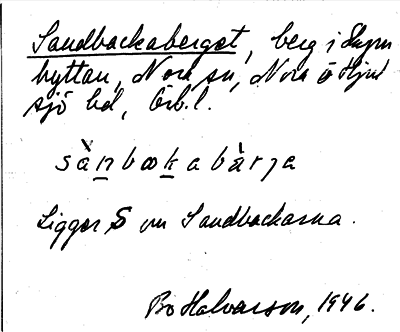 Sandbackaberget, berg i Skrekarhyttan
hyttan, Nora sn, Nora o Hjul
sjö bd, Örb. l.
sànbakabàrja
Ligger S om Sandbackarna.
Bo Halvarson, 1946.